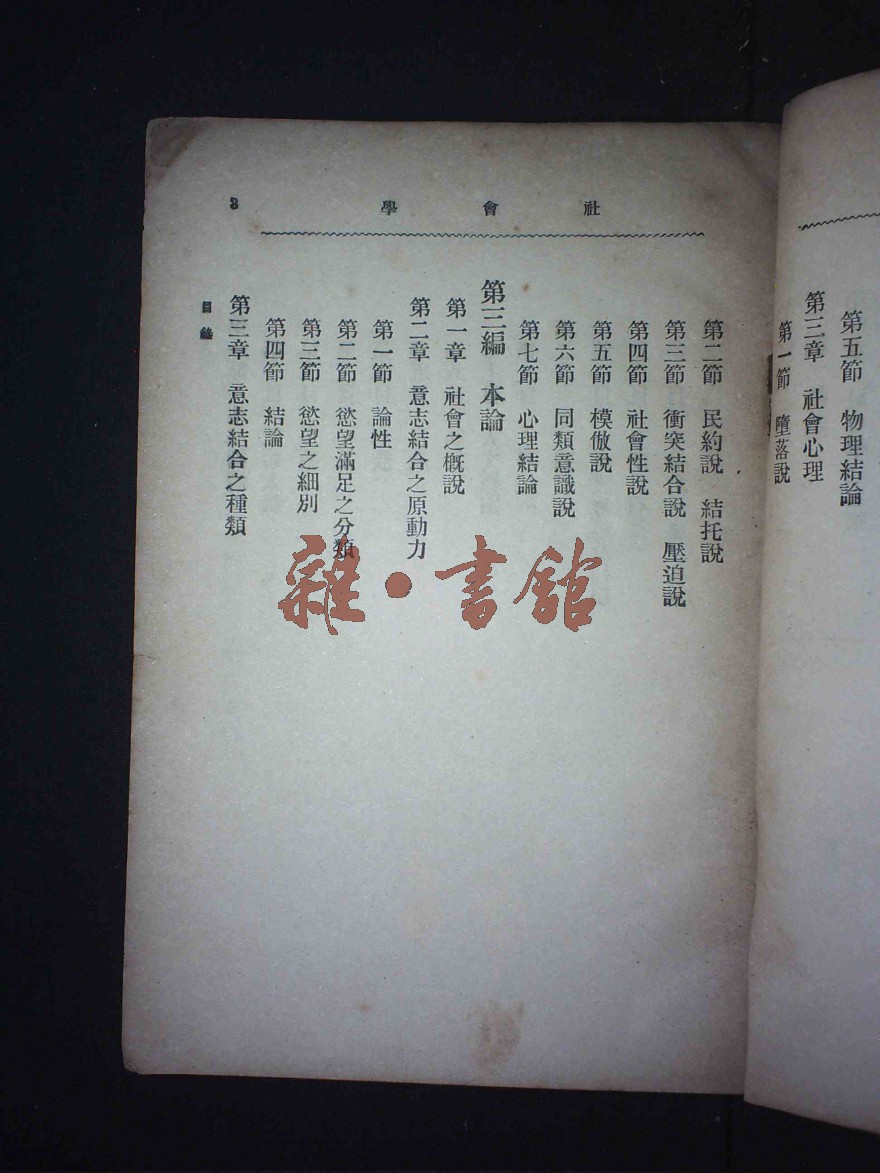 第五節　物理結論
第三章　社會心理
第一節　墮落說
社會學
3
第二節　民約說　結托說
第三節　衝突結合說　壓迫說
第四節　社會性說
第五節　模倣說
第六節　同類意識說
第七節　心理結論
第三編　本論
第一章　社會之概說
第二章　意志結合之原動力
第一節　論性
第二節　慾望滿足之分類
第三節　慾望之細別
第四節　結論
第三章　意志結合之種類
目錄
雜·書館